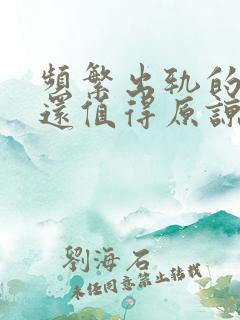 頻繁出軌的
還值得原諒
劉海石
未經同意禁止转载